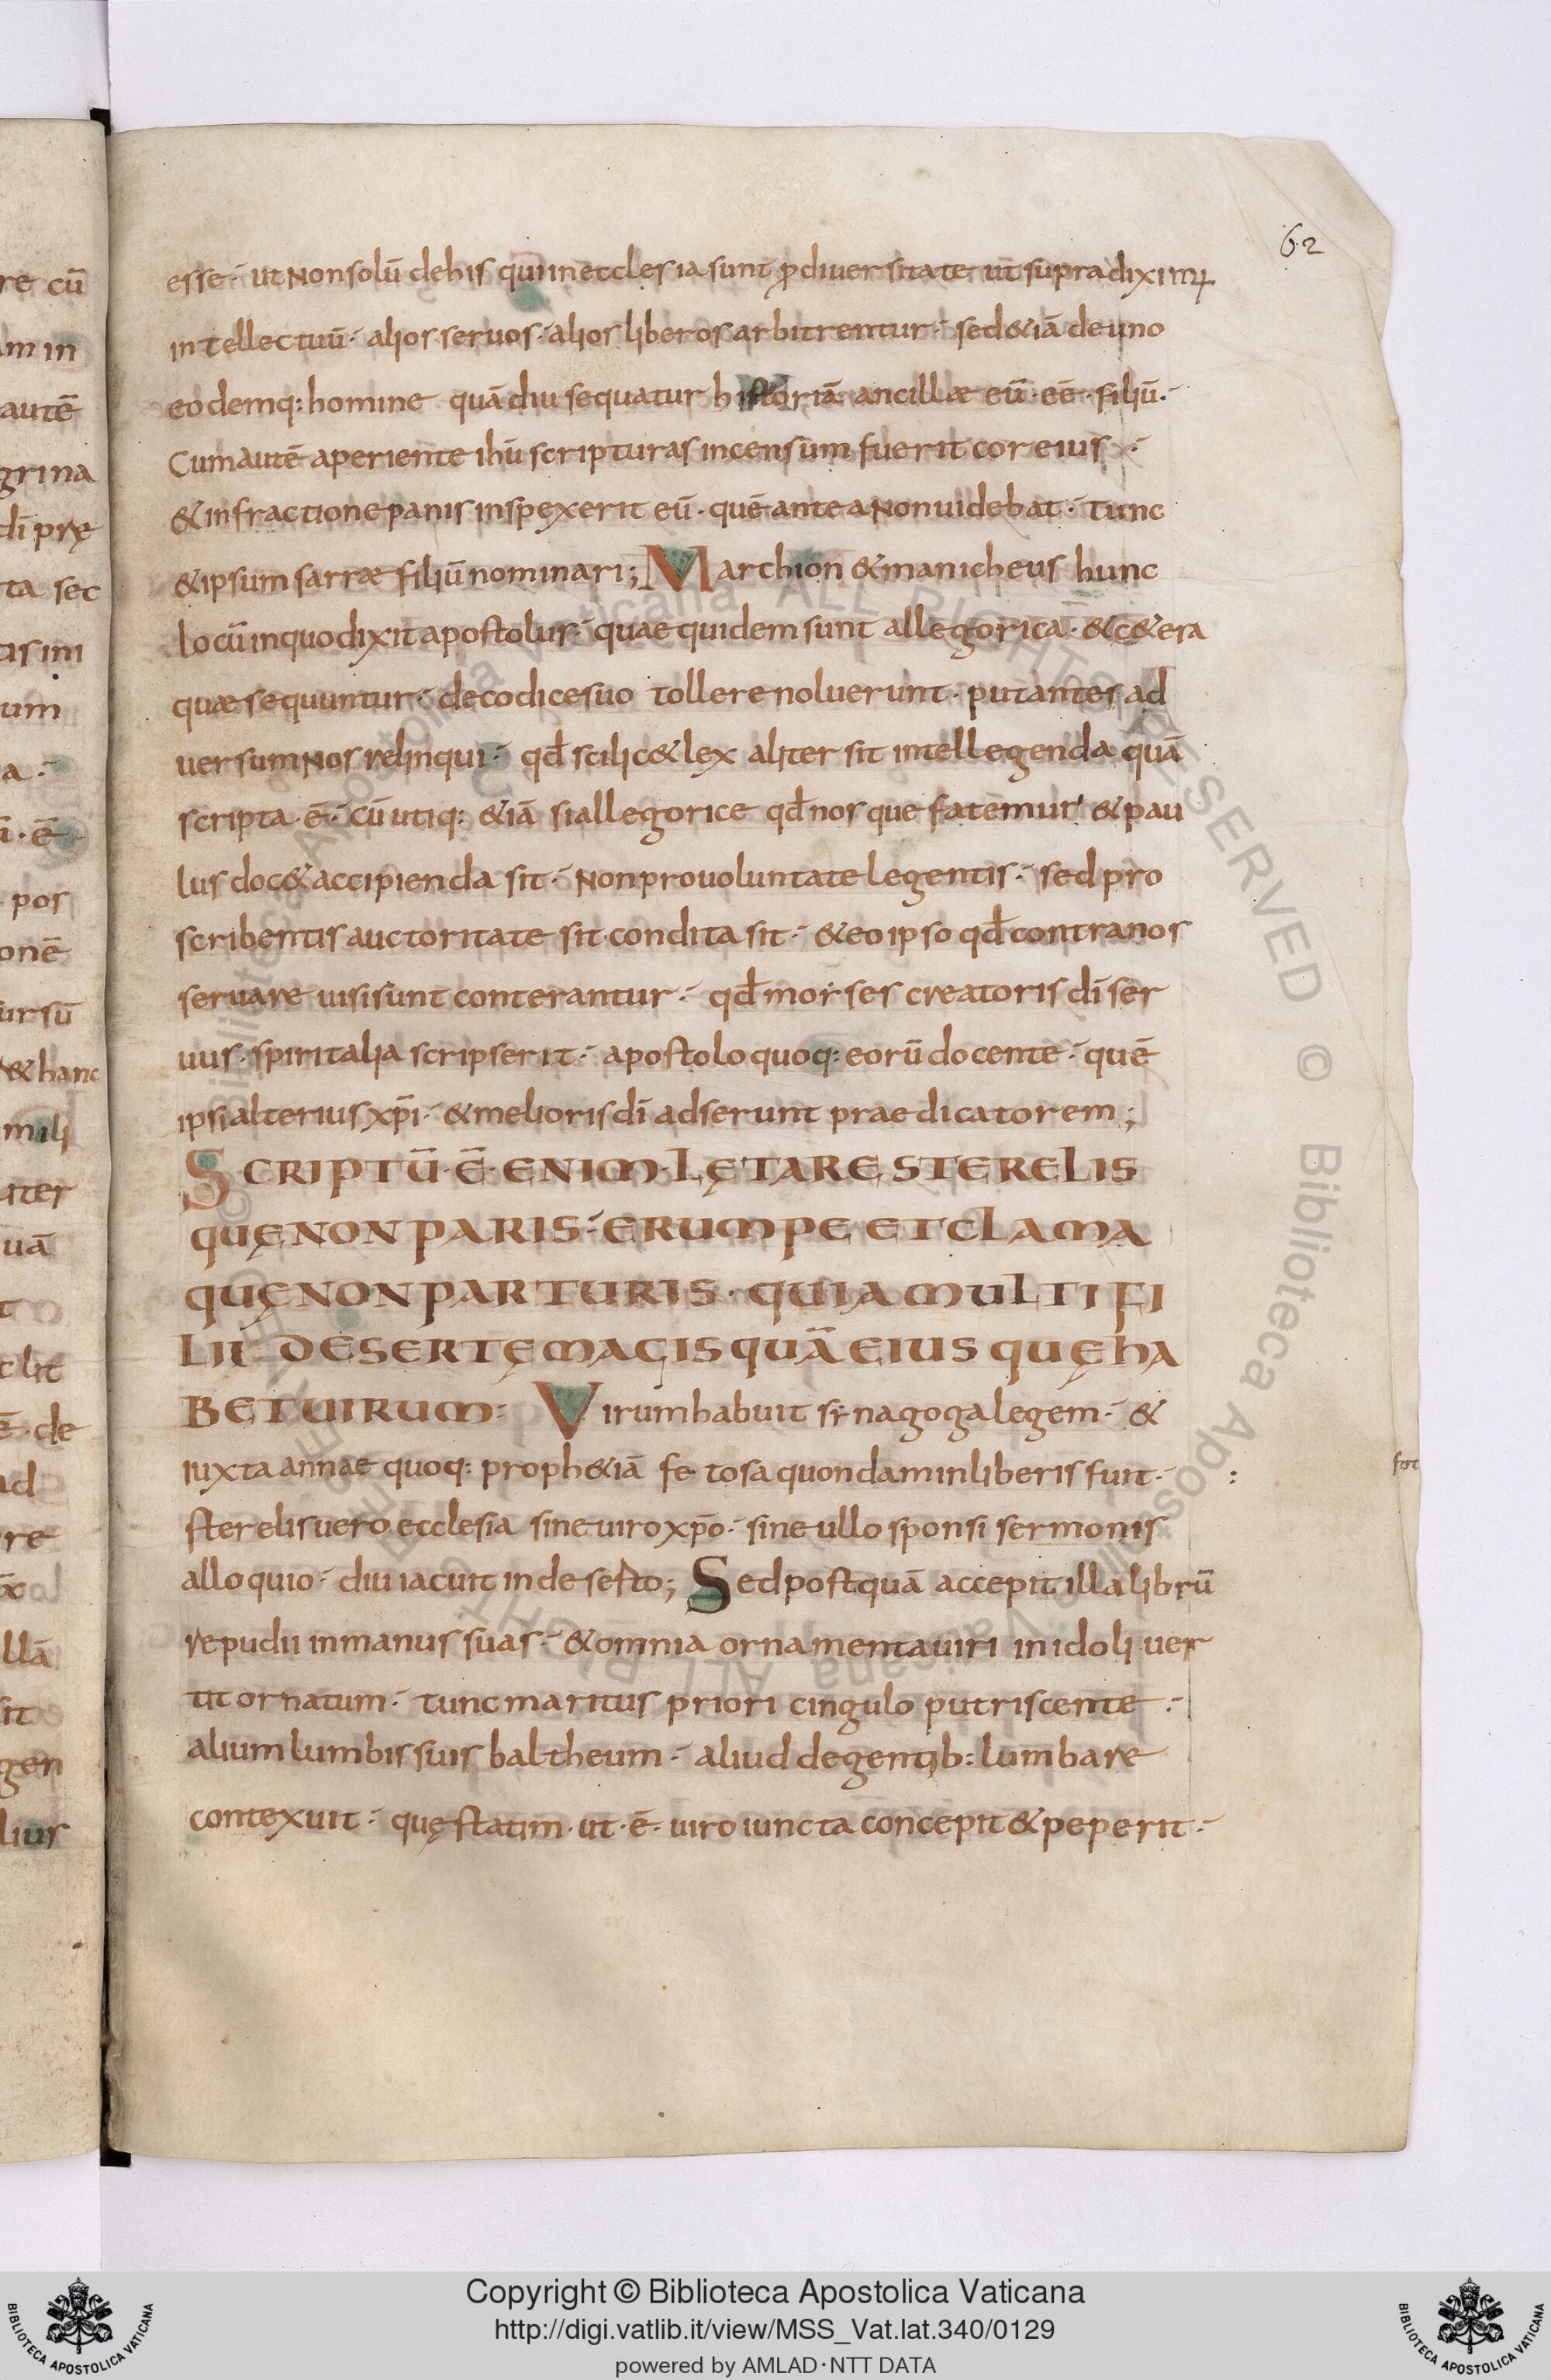 62
esse· ut non solū de his qui in etclesia sunt ꝓ diuersitate ut supra diximꝰ
intellectuū· alios seruos· alios liberos arbitrentur· sed &iā de uno
eodemq: homine quādiu sequatur historiā ancillæ eū· eē· filiū·
Cum autē aperiente ihū scripturas incensum fuerit cor eius·
& in fractione panis inspexerit eū· quē antea non uidebat· Tunc
& ipsum sarræ filiū nominari; Marchion & manicheus hunc
locū in quo dixit apostolus· quae quidem sunt allegorica· & c&era
quæ sequuntur· de codice suo tollere noluerunt· putantes ad
uersum nos relinqui· qđ scilic& lex aliter sit intellegenda quā
scripta· ē· cū utiq: &iā si allegorice qđ nos que fatemur & pau
lus doc& accipienda sit· non pro uoluntate legentis· sed pro
scribentis auctoritate sit condita sit· & eo ipso qđ contra nos
seruare uisi sunt conterantur· qđ moẏses creatoris dī ser
uus· spiritalia scripserit· apostolo quoq: eorū docente· quē
ipsi alterius xp̄i· & melioris dī adserunt praedicatorem;
SCRIPTŪ· Ē· ENIM· LĘTARE STERELIS
QUĘ NON PARIS· ERUMPE ET CLAMA
QUĘ NON PARTURIS· QUIA MULTI FI
LII DESERTĘ MAGIS QUĀ EIUS QUĘ HA
BET UIRUM: Virum habuit sẏnagoga legem· &
iuxta annae quoq: proph&iā fe tosa quondam in liberis fuit· :
fot
sterelis uero ecclesia sine uiro xp̄o· sine ullo sponsi sermonis
alloquio· diu iacuit in deserto; Sed postquā accepit illa librū
repudii in manus suas· & omnia ornamenta uiri in idoli uer
tit ornatum· tunc maritus priori cingulo putriscente·
alium lumbis suis baltheum· aliud de gentib: lumbare
contexuit· quę statim· ut· ē· uiro iuncta concepit & peperit·
Copyright © Biblioteca Apostolica Vaticana
http://digi.vatlib.it/view/MSS_Vat.lat.340/0129
powered by AMLAD·NTT DATA